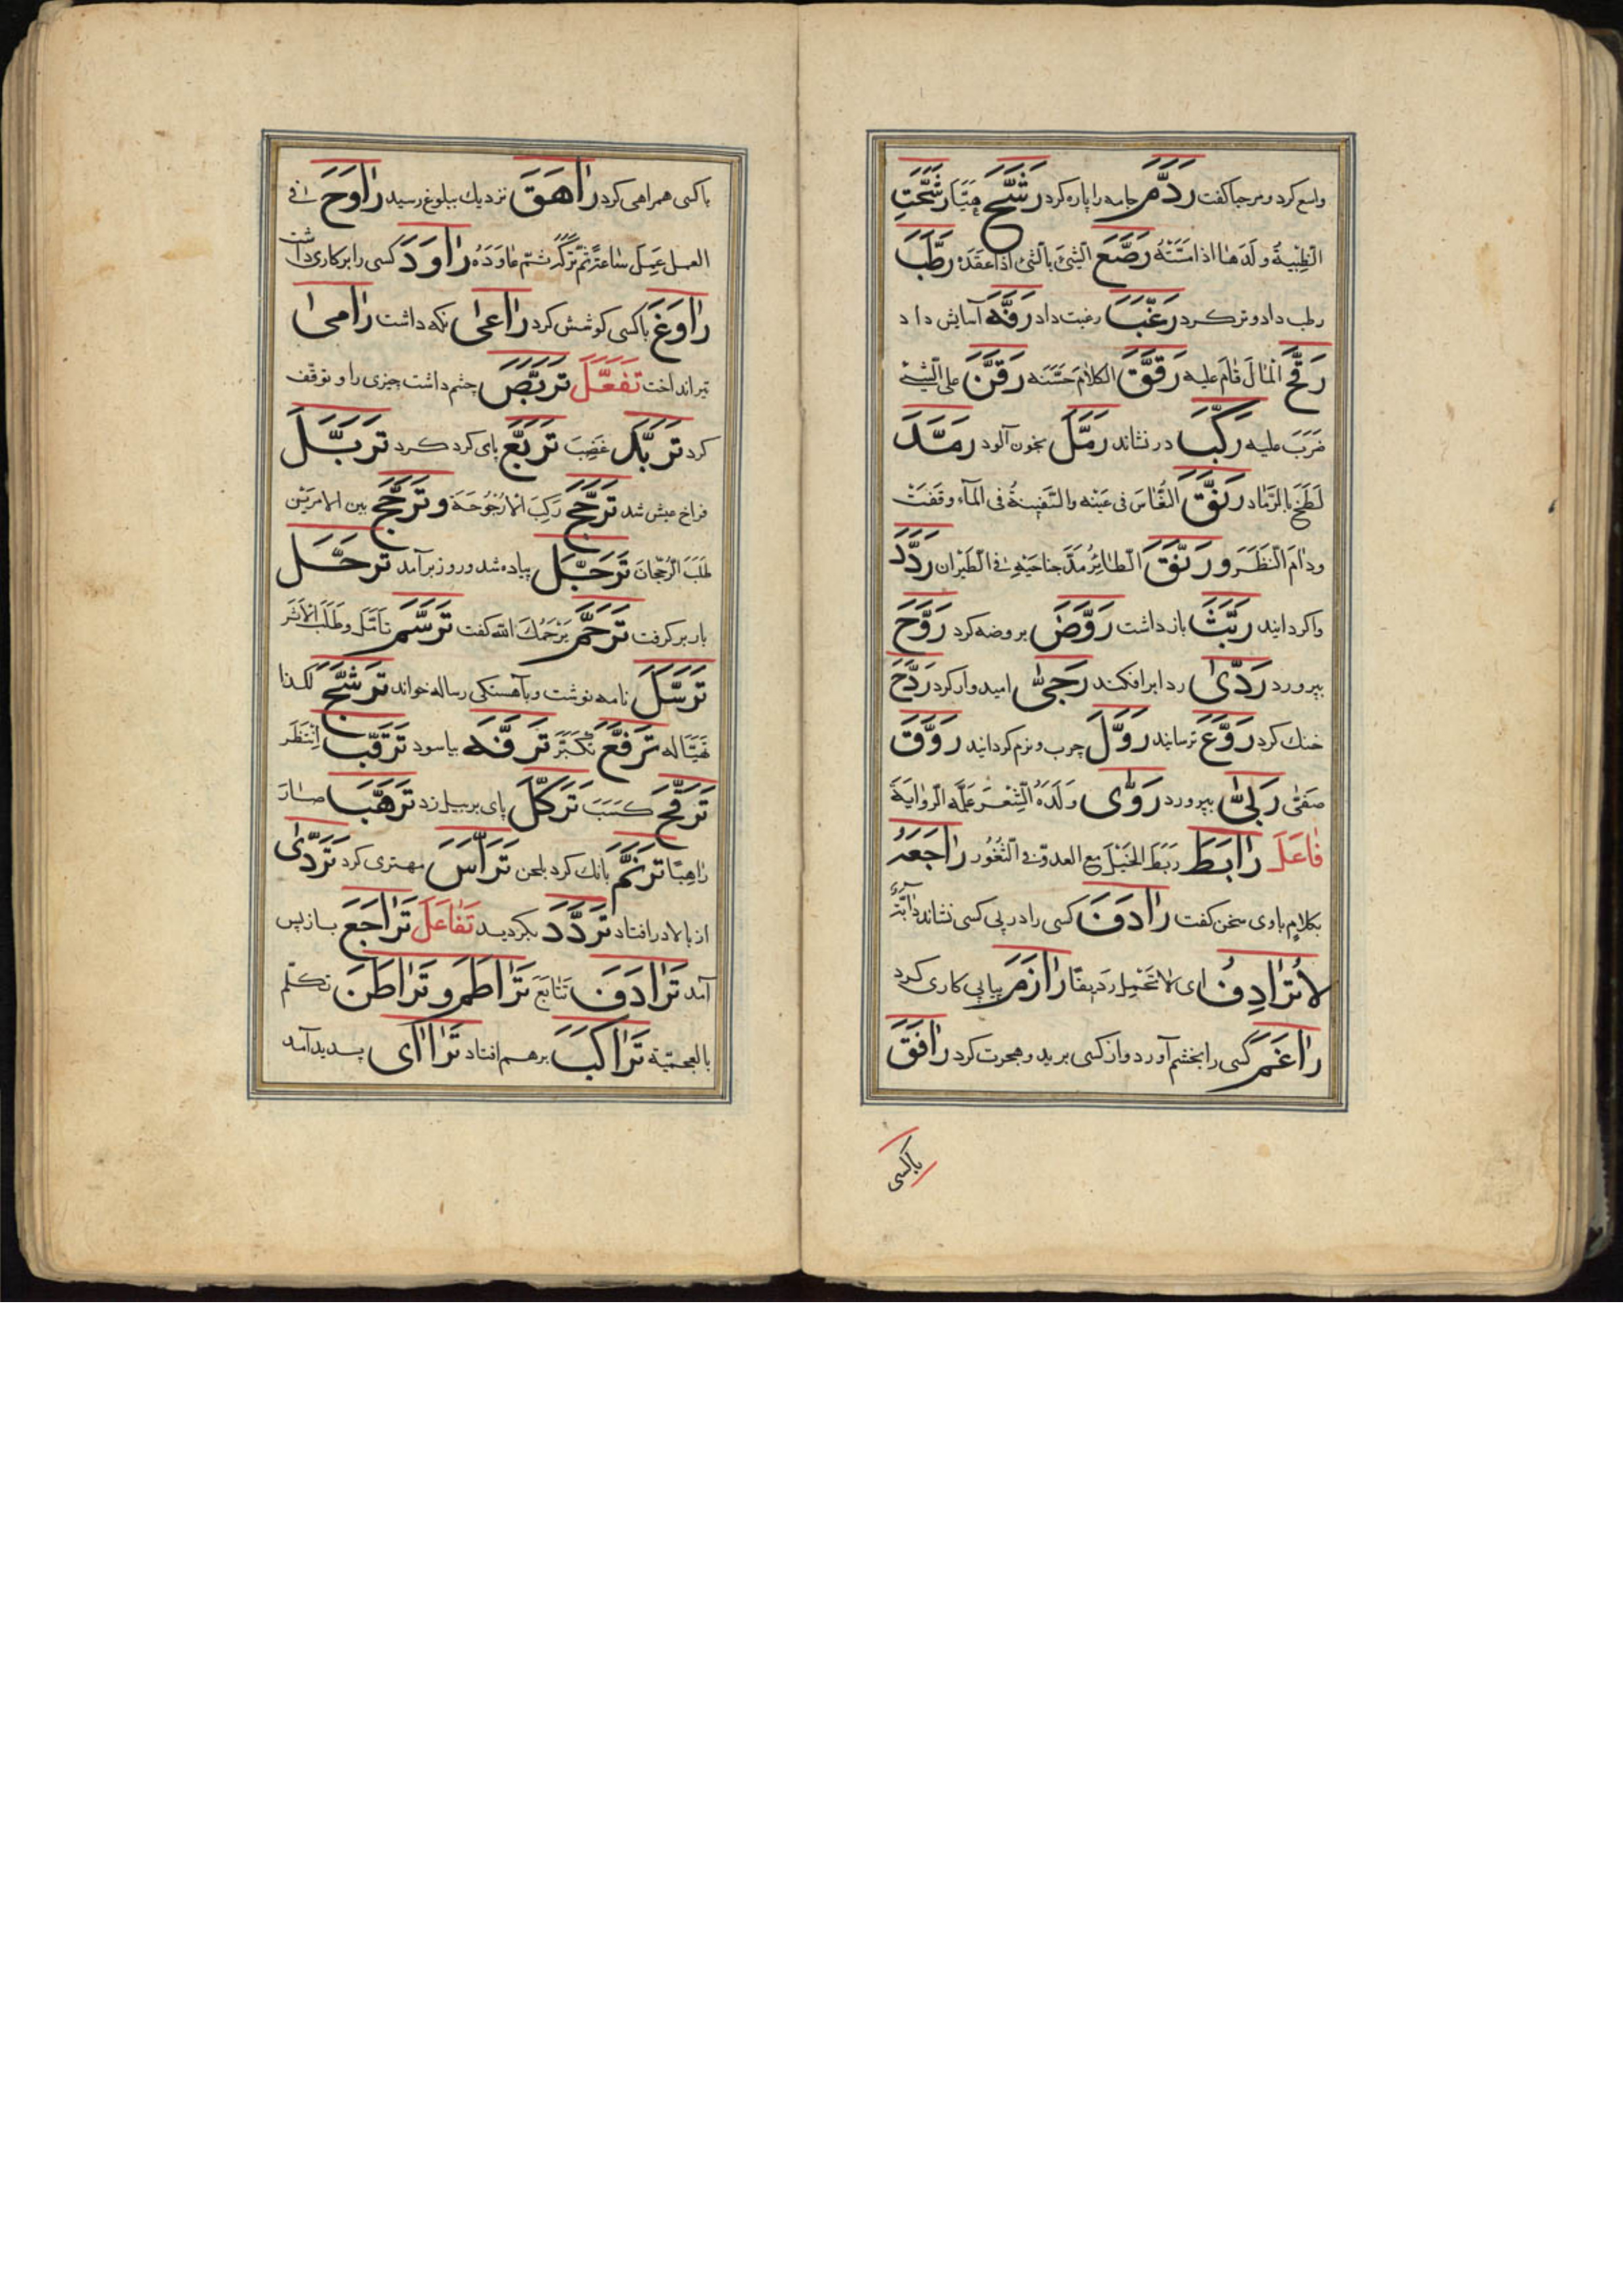 واسع کرد و مرحبا کفت رَدَّمَ جامه را پاره کرد رَشَّحَ هَيَّأ رَشَّحَتِ
الظَّبْيَةُ ولَدَها اذا مَشَتْهُ رَصَّعَ الشَّیْءَ بالشَّیْءِ اذا عقَدَهُ رَطَّبَ
رطب داد و تر کرد رَغَّبَ رغبت داد رَفَّهَ آسایش داد
رَقَّحَ الْمَالَ قَامَ علیه رَقَّقَ الکلامَ حَسَّنَهُ رَقَّنَ علی الشَّیْءِ
ضَرَبَ علیه رَکَّبَ در نشاند رَمَّلَ بخون آلود رَمَّدَ
لَطَخَ بالرَّماد رَنَّقَ النُّعَاسُ فی عَیْنِه والسَّفِینةُ فی المآء وقَفَتْ
ودامَ النَّظَرَ ورَنَّقَ الطَّائِرُ مَدَّ جناحَیْهِ فی الطَّیْران رَدَّدَ
واکردانید رَیَّثَ باز داشت رَوَّضَ بروضه کرد رَوَّحَ
بپرورد رَدَّیٰ ردا برافکند رَجَّیٰ امیدوار کرد
خنك کرد رَوَّعَ ترسانید رَوَّلَ چرب و نرم کردانید رَوَّقَ
صَفَّیٰ رَبَّیٰ بپرورد رَوَّیٰ وَلَدَهُ الشِّعْرَ عَلَّمَه الرِّوایَةَ
فَاعَلَ رَابَطَ رَبَطَ الخَیْلَ مع العدوّ فی الثُّغُور رَاجَعَهُ
بکلامٍ با وی سخن کفت رَادَفَ کسی را در پی کسی نشاند دابَّةٌ
لاتُرَادِفُ ای لاتَحْمِل رَدِیفًا رَازَمَ پیاپی کاری کرد
رَاغَمَ کسی را بخشم آورد و از کسی برید و هجرت کرد رَافَقَ
باکسی
باکسی همراهی کرد رَاهَقَ نزدیك ببلوغ رسید رَاوَحَ فی
العمل عَمِلَ ساعةً ثمّ تَرَکَه ثمّ عَاوَدَهُ رَاوَدَ کسی را بر کاری داشت
رَاوَغَ باکسی کوشش کرد رَاعَیٰ نکه داشت رَامَیٰ
تیر انداخت تَفَعَّلَ تَرَبَّصَ چشم داشت چیزی را و توقّف
کرد تَرَبَّدَ غَضِبَ تَرَبَّعَ پای کرد کرد تَرَبَّلَ
فراخ عیش شد تَرَجَّحَ رَکِبَ الاُرْجُوحَةَ وتَرَجَّحَ بین الامرَیْن
طَلَبَ الرُّجْحَانَ تَرَجَّلَ پیاده شد و روز برآمد تَرَحَّلَ
بار بر کرفت تَرَحَّمَ یَرْحَمُكَ الله کفت تَرَسَّمَ تَأَمَّلَ وطَلَبَ الاَثَرَ
تَرَسَّلَ نامه نوشت و بآهستکی رساله خواند تَرَشَّحَ لکذا
تَهَیَّأ له تَرَفَّعَ تَکَبَّرَ تَرَفَّهَ بیاسود تَرَقَّبَ اِنْتَظَرَ
تَرَقَّحَ کَسَبَ تَرَکَّلَ پای بر بیل زد تَرَهَّبَ صارَ
رَاهِبًا تَرَنَّمَ بانك کرد بلحن تَرَأَّسَ مهتری کرد تَرَدَّیٰ
از بالا در افتاد تَرَدَّدَ بکردید تَفَاعَلَ تَرَاجَعَ بازپس
آمد تَرَادَفَ تتابَعَ تَرَاطَمَ وتَرَاطَنَ تکلّم
بالعجمیّة تَرَاکَبَ برهم افتاد تَرَاأَی پدید آمد